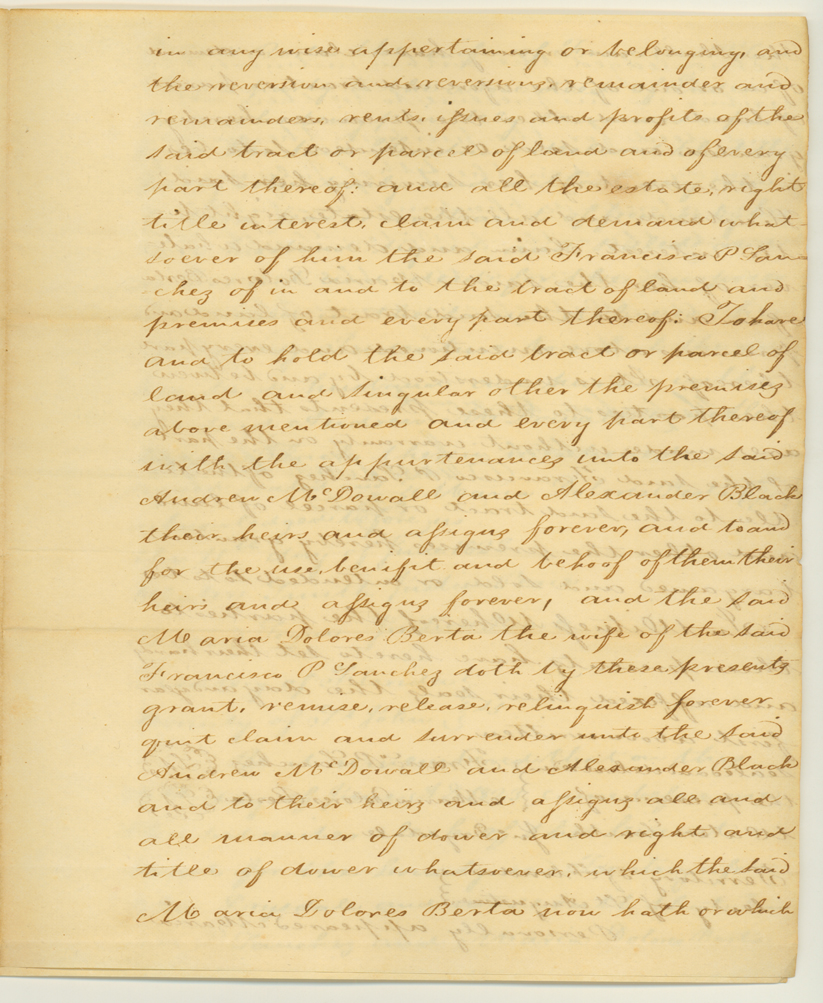 in any wise appertaining or belonging, and
the reversion and reversions, remainder and
remainders, rents, issues and profits of the
said tract or parcel of land and of every
part thereof: and all the estate, right
title interest, claim and demand what-
soever of him the said Francisco P San-
chez of in and to the tract of land and
premises and every part thereof: To have
and to hold the said tract or parcel of
land and singular other the premises
above mentioned and every part thereof
with the appurtenances unto the said
Andrew McDowall and Alexander Black
their heirs and assigns forever, and to and
for the use, benifit and behoof of them their
heirs and assigns forever, and the said
Maria Dolores Berta the wife of the said
Francisco P Sanchez doth by these presents
grant, remise, release, relinquish forever
quit claim and surrender unto the said
Andrew McDowall and Alexander Black
and to their heirs and assigns all and
all manner of dower and right and
title of dower whatsoever, which the said
Maria Dolores Berta now hath or which